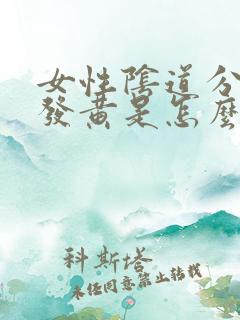 女性陰道分
發黃是怎麼
科斯塔
未经同意禁止转载